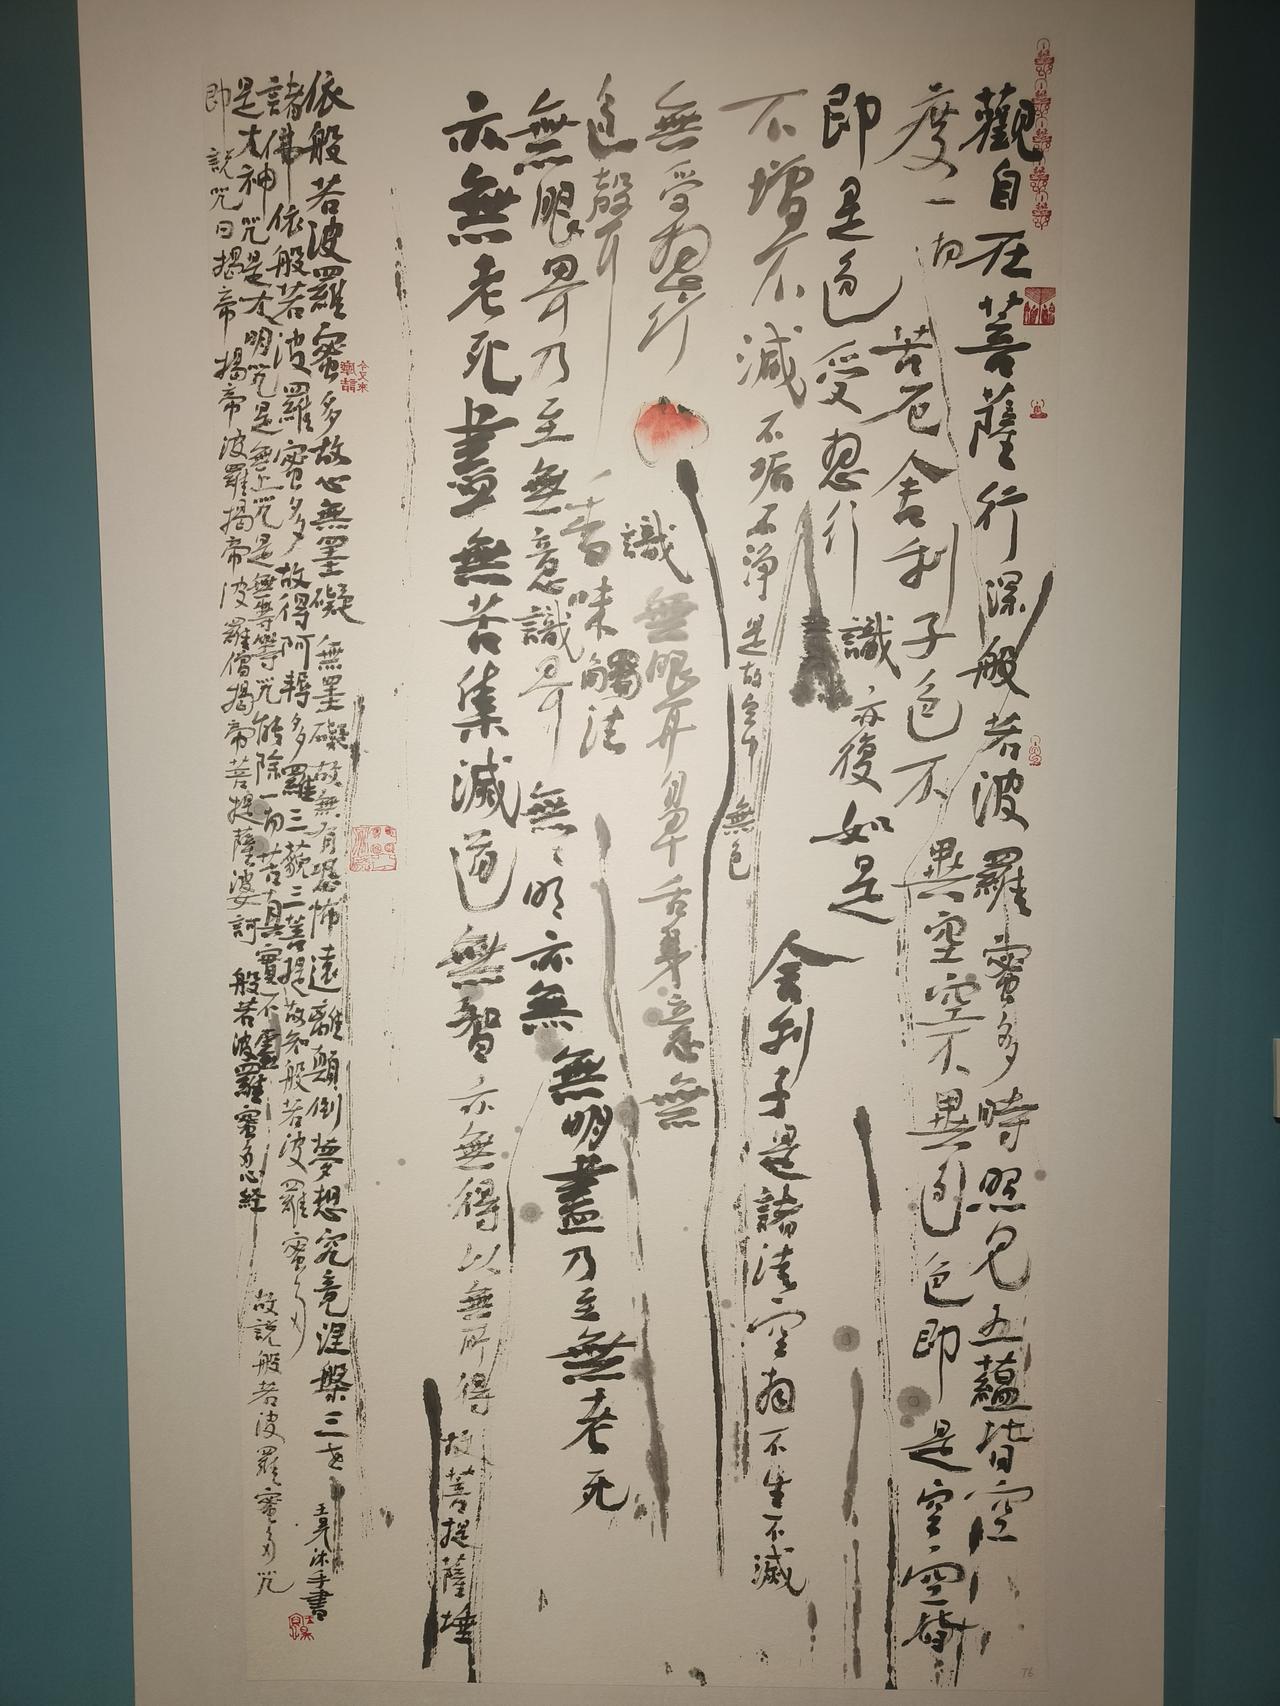 觀自在菩薩行深般若波羅蜜多時照見五蘊皆空
度一切苦厄舍利子色不異空空不異色色即是空空
即是色受想行識亦復如是
舍利子是諸法空相不生不滅
不增不減不垢不淨是故空中無色
無受想行識無眼耳鼻舌身意無
色聲香味觸法
無眼界乃至無意識界無無明亦無無明盡乃至無老死
亦無老死盡無苦集滅道無智亦無得以無所得故菩提薩埵
依般若波羅蜜多故心無罣礙無罣礙故無有恐怖遠離顛倒夢想究竟涅槃三世
諸佛依般若波羅蜜多故得阿耨多羅三藐三菩提故知般若波羅蜜多
是大神咒是大明咒是無上咒是無等等咒能除一切苦真實不虛
故說般若波羅蜜多咒
即說咒曰揭帝揭帝波羅揭帝波羅僧揭帝菩提薩婆訶
般若波羅蜜多心経
沐手書
76